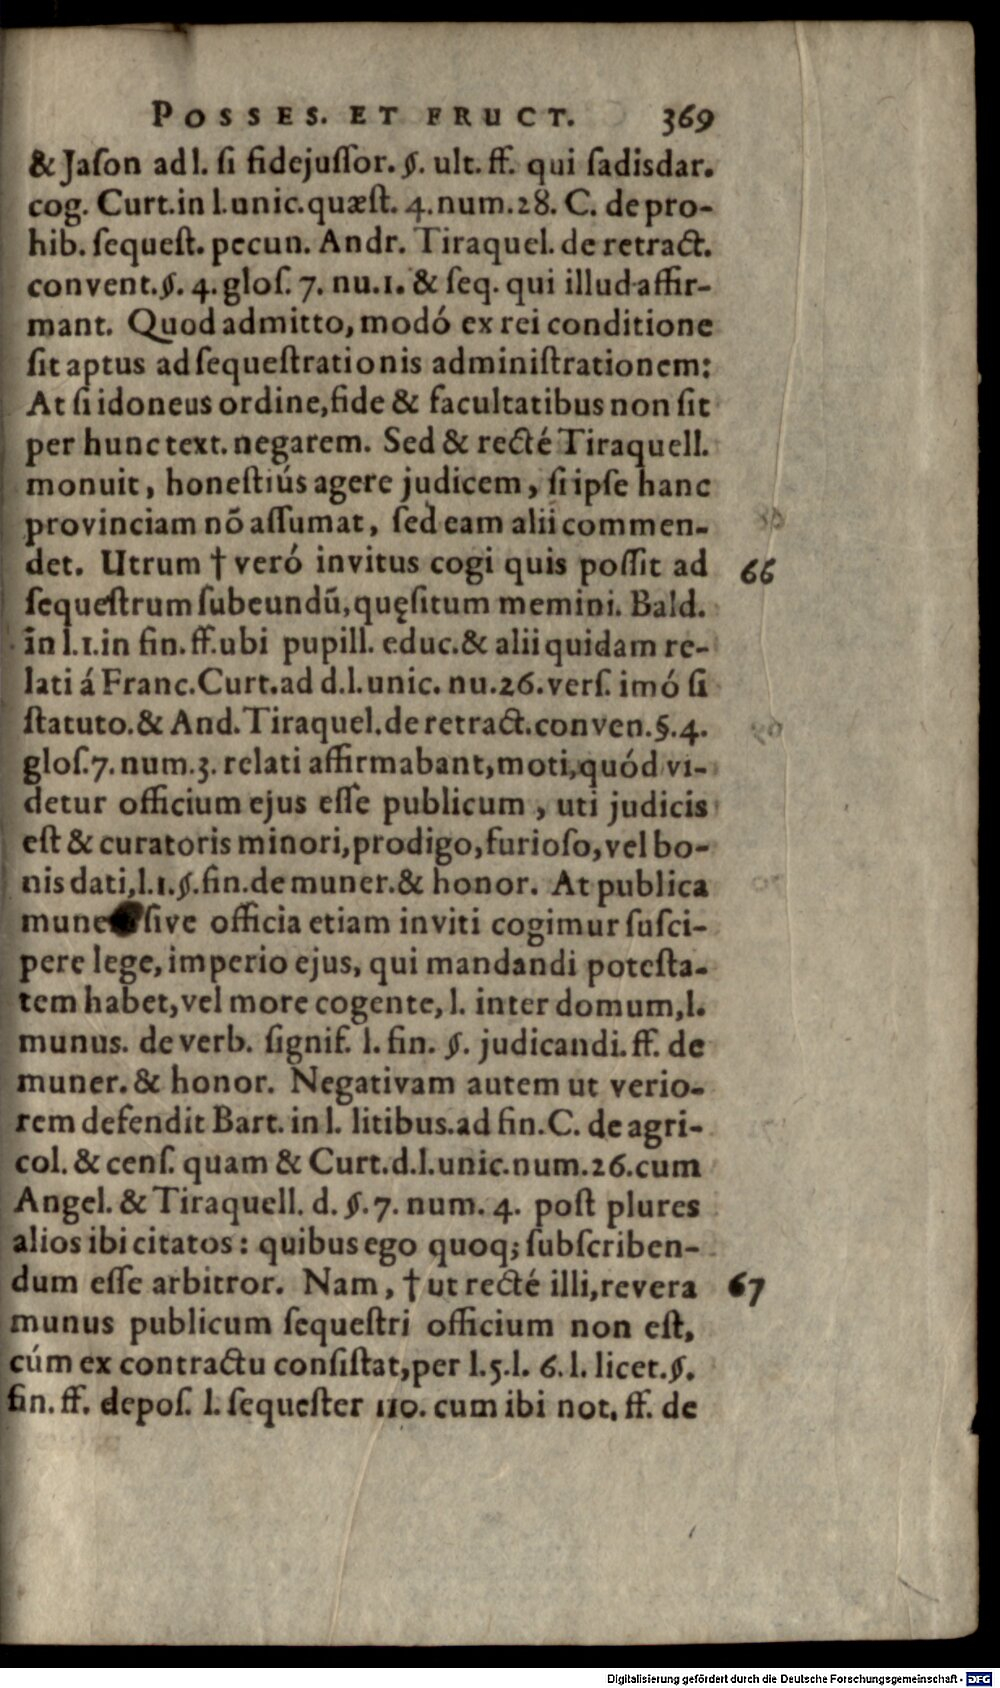 POSSES. ET FRUCT. 369
& Jaſon ad l. ſi fidejuſſor. §. ult. ff. qui ſadisdar.
cog. Curt. in l. unic. quæſt. 4. num. 28. C. de pro-
hib. ſequeſt. pecun. Andr. Tiraquel. de retract.
convent. §. 4. gloſ. 7. nu. 1. & ſeq. qui illud affir-
mant. Quod admitto, modó ex rei conditione
ſit aptus ad ſequeſtrationis adminiſtrationem:
At ſi idoneus ordine, fide & facultatibus non ſit
per hunc text. negarem. Sed & recté Tiraquell.
monuit, honeſtiús agere judicem, ſi ipſe hanc
provinciam nõ aſſumat, ſed eam alii commen-
det. Utrum † veró invitus cogi quis poſſit ad 66
ſequeſtrum ſubeundũ, quęſitum memini. Bald.
in l. 1. in fin. ff. ubi pupill. educ. & alii quidam re-
lati á Franc. Curt. ad d. l. unic. nu. 26. verſ. imó ſi
ſtatuto. & And. Tiraquel. de retract. conven. §. 4.
gloſ. 7. num. 3. relati affirmabant, moti, quód vi-
detur officium ejus eſſe publicum, uti judicis
eſt & curatoris minori, prodigo, furioſo, vel bo-
nis dati, l. 1. §. fin. de muner. & honor. At publica
mune ſive officia etiam inviti cogimur ſuſci-
pere lege, imperio ejus, qui mandandi poteſta-
tem habet, vel more cogente, l. inter domum, l.
munus. de verb. ſignif. l. fin. §. judicandi. ff. de
muner. & honor. Negativam autem ut verio-
rem defendit Bart. in l. litibus. ad fin. C. de agri-
col. & cenſ. quam & Curt. d. l. unic. num. 26. cum
Angel. & Tiraquell. d. §. 7. num. 4. poſt plures
alios ibi citatos: quibus ego quoq; ſubſcriben-
dum eſſe arbitror. Nam, † ut recté illi, revera 67
munus publicum ſequeſtri officium non eſt,
cúm ex contractu conſiſtat, per l. 5. l. 6. l. licet. §.
fin. ff. depoſ. l. ſequeſter 110. cum ibi not. ff. de
Digitalisierung gefördert durch die Deutsche Forschungsgemeinschaft - DFG